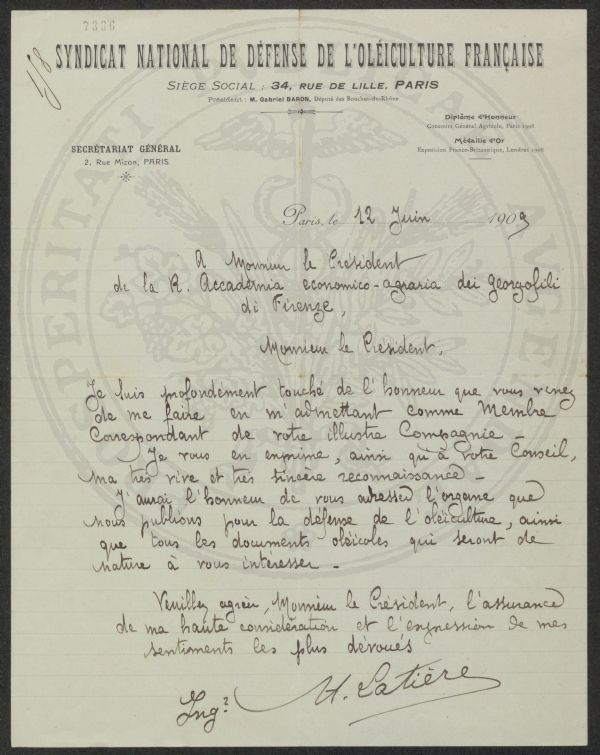 7336
1/8
SYNDICAT NATIONAL DE DÉFENSE DE L'OLÉICULTURE FRANÇAISE
SIÈGE SOCIAL : 34, RUE DE LILLE, PARIS
Président : M. Gabriel BARON, Député des Bouches-du-Rhône
Diplôme d'Honneur
Concours Général Agricole, Paris 1908
Médaille d'Or
Exposition Franco-Britannique, Londres 1908
SECRÉTARIAT GÉNÉRAL
2, Rue Mizon, PARIS
Paris, le 12 Juin 1909
A Monsieur le Président
de la R. Accademia economico-agraria dei georgofili
di Firenze,
Monsieur le Président,
Je suis profondément touché de l'honneur que vous venez
de me faire en m'admettant comme Membre
Correspondant de votre illustre Compagnie -
Je vous en exprime, ainsi qu'à votre Conseil,
ma très vive et très sincère reconnaissance -
J'aurai l'honneur de vous adresser l'organe que
nous publions pour la défense de l'oléiculture, ainsi
que tous les documents oléicoles qui seront de
nature à vous intéresser -
Veuillez agréer, Monsieur le Président, l'assurance
de ma haute considération et l'expression de mes
sentiments les plus dévoués
H. Latière
Ingr
PERITATI
AUGE